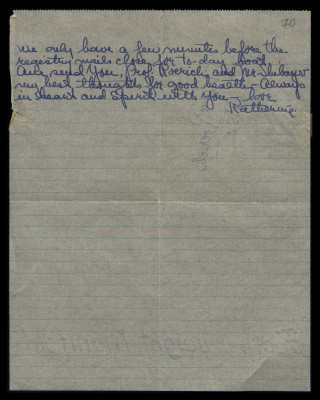 70
we only have a few minutes before the
registry mails close for to-day boat
and send You, Prof. Roerich and Mr. Shibayev
my best thoughts for good health - Always
in heart and Spirit with You - love
Katherine.